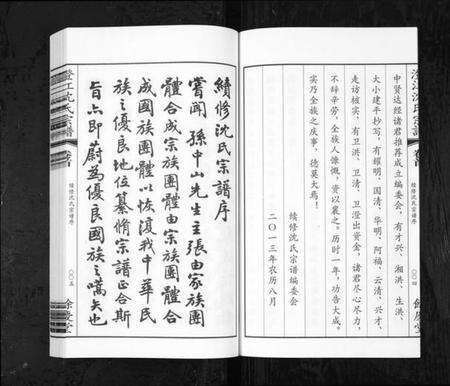 澄江沈氏宗譜
卷首
续修沈氏宗谱序
〇〇四
餘慶堂
中贤达经诸君推荐成立编委会，有才兴，湘洪，生洪，
大小建平抄写，有耀明，国清，华明，阿福，云清，兴才，
走访核实，有卫洪，卫清，卫澄出资金，诸君尽心尽力，
不辞辛劳，全族人慷慨，资以襄之。历时一年，功告大成。
实乃全族之庆事， 德莫大焉！
续修沈氏宗谱编委会
二〇一三年农历八月
續修沈氏宗譜序
嘗聞 孫中山先生主張由家族團
體合成宗族團體由宗族團體合
成國族團體以恢復我中華民
族之優良地位纂脩宗譜正合斯
旨点即蔚為優良國族之嚆矢也
澄江沈氏宗譜
卷首
续修沈氏宗谱序
〇〇五
餘慶堂